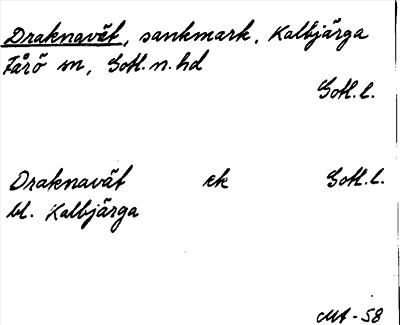 Draknavät, sankmark, Kalbjärga
Fårö sn, Gotl. n. hd
Gotl. l.
Draknavät ek Gotl. l.
bl. Kalbjärga
MA-58